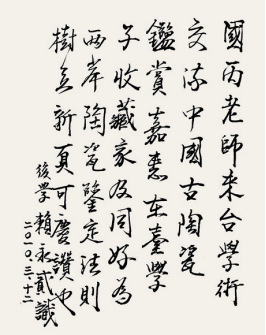 國丙老師來台學術
交流中國古陶瓷
鑑賞嘉惠在臺學
子收藏家及同好為
兩岸陶瓷鑒定法則
樹立新頁可慶讚也
後學賴永貳識
二〇一〇.三.十二